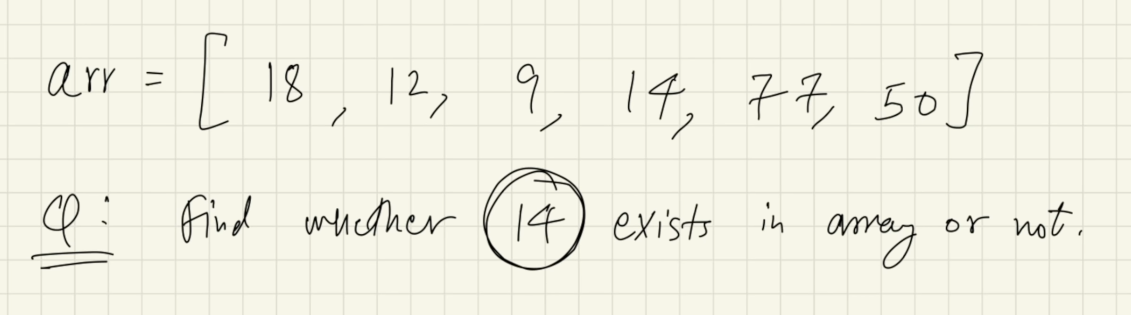 arr = [ 18, 12, 9, 14, 77, 50]
Q: Find whether 14 exists in array or not.